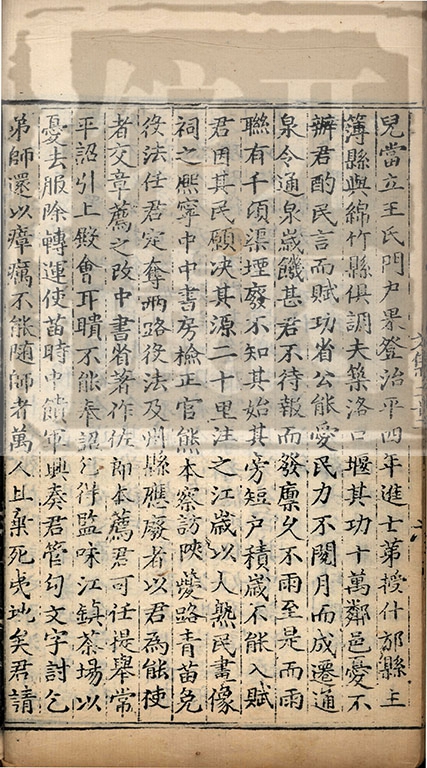 兒當立王氏門户果登治平四年進士第授什邡縣主
簿縣與綿竹縣俱調夫築洛口堰其功十萬鄰邑憂不
辦君酌民言而賦功省公能愛民力不閱月而成遷通
泉令通泉嵗饑甚君不待報而發廪久不雨至是而雨
聮有千頃渠堙廢不知其始其旁短户積嵗不能入賦
君因其民願决其源二十里注之江嵗以大熟民畫像
祠之熈寧中中書房檢正官熊本察訪陜䕫路青苗免
役法任君定奪兩路役法及州縣應廢者以君為能使
者交章薦之改中書省著作佐郎本薦君可任提舉常
平詔引上殿會耳聵不能奉詔乞得監味江鎮茶場以
憂去服除轉運使苗時中饋軍興奏君管勾文字討乞
弟師還以瘴癘不能随師者萬人且棄死夷地矣君請